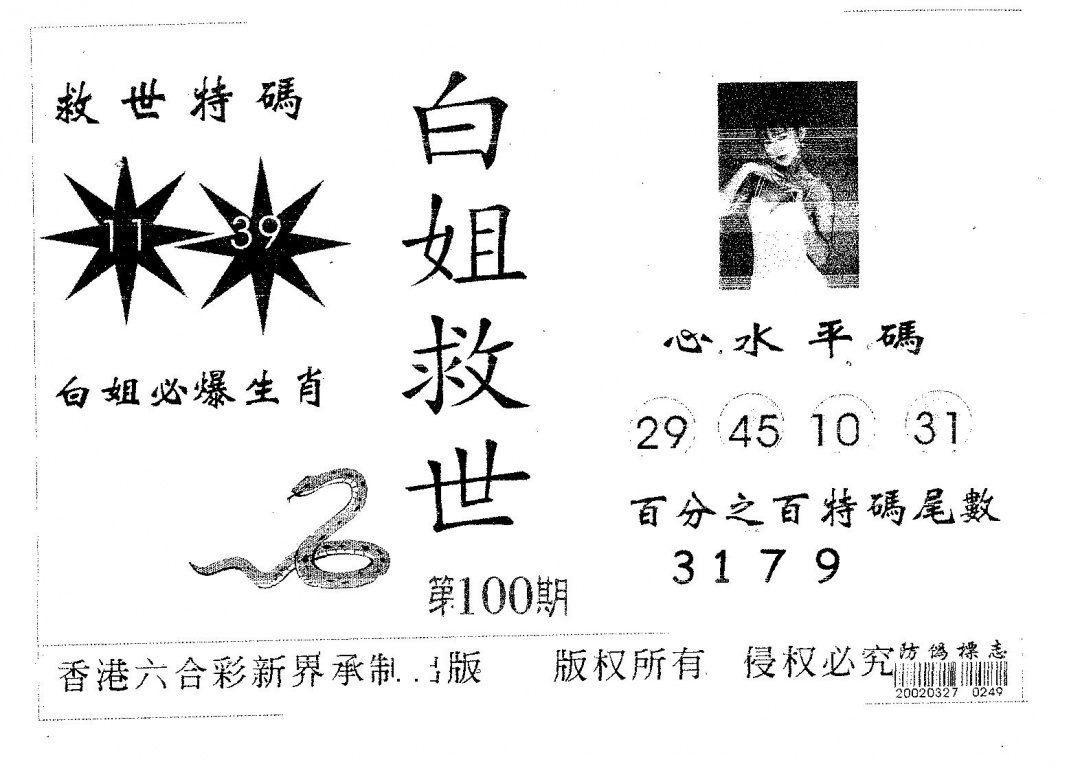 救世特碼
11 39
白姐必爆生肖
白姐救世
第100期
心水平碼
29 45 10 31
百分之百特碼尾數
3 1 7 9
香港六合彩新界承制..出版 版权所有 侵权必究
防偽標志
20020327 0249